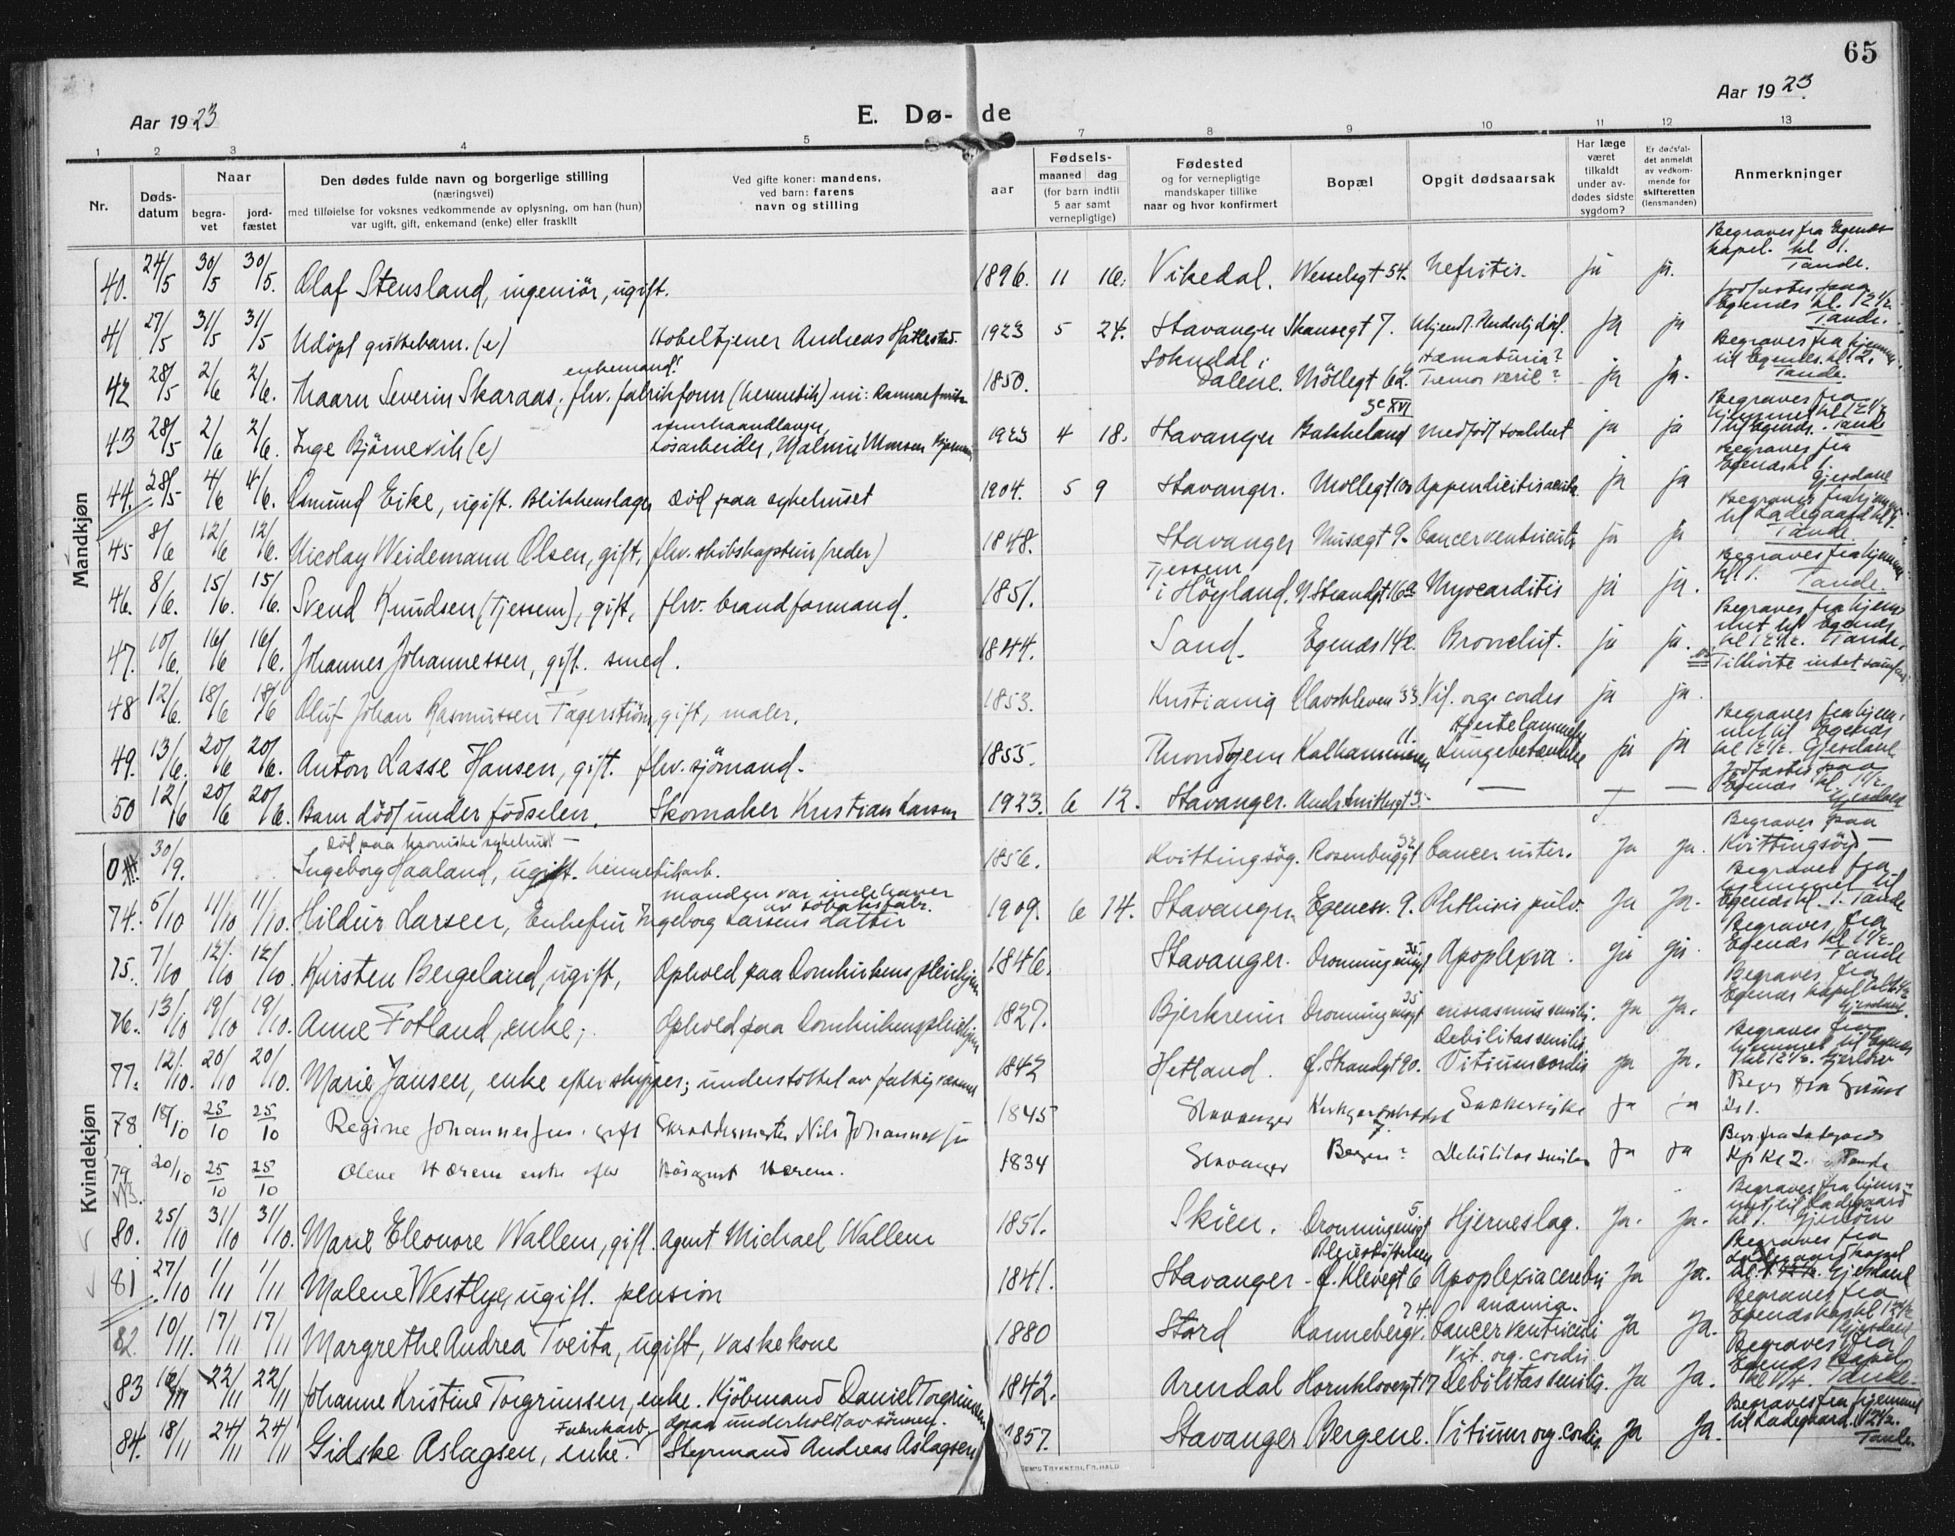 65
Aar 1923
E. Dø- de
Aar 1923
1 2 3 4 5 7 8 9 10 11 12 13
Nr.
Døds-datum
Naar
begra-vet
jord-fæstet
Den dødes fulde navn og borgerlige stilling
(næringsvei)
med tilføielse for voksnes vedkommende av oplysning, om han (hun)
var ugift, gift, enkemand (enke) eller fraskilt
Ved gifte koner: mandens,
ved barn: farens
navn og stilling
aar
Fødsels-
maaned dag
(for barn indtil
5 aar samt
vernepligtige)
Fødested
og for vernepligtige
mandskaper tillike
naar og hvor konfirmert
Bopæl
Opgit dødsaarsak
Har læge
været
tilkaldt
under av-
dødes sidste
sygdom?
Er dødsfal-
det anmeldt
av vedkom-
mende for
skifteretten
(lensmanden)
Anmerkninger
Mandkjøn
40. 24/5 30/5 30/5. Olaf Stensland, ingeniör, ugift. 1896. 11 16. Vikedal. Wesselsgt 54. Nefritis. ja ja. Begraves fra Egenæs kapel. kl 1. Tande.
41 27/5 31/5 31/5 Udöpt guttebarn. (e) Hoteltjener Andreas 1923 5 24. Stavanger Skansegt 7. ja ja Jordfæstes paa Egenæs kl. 12 1/2. Tande.
42 28/5 2/6 2/6. Maarn Severin Skaraas, enkemand! fhv. fabrikform (hermetik) 1850. Sokndal i Dalene. Möllegt 62. Hæmaturia? ja ja. Begraves fra hjemmet til Egenæs kl 12. Tande.
43 28/5 2/6 2/6. Inge Björnevik (e) Lösarbeider, 1923 4 18. Stavanger Bakkeland Medfödt svakhet ja ja Begraves fra hjemmet kl 12 1/2 til Egenæs. Tande
44. 28/5 4/6 4/6. Osmund Eike, ugift. Blikkenslager död paa sykehuset 1904. 5 9 Stavanger. Möllegt Appendicitis acuta ja ja Begraves fra Egenæs kl 1 Gjesdahl
45 8/6 12/6 12/6. Nicolay Weidemann Olsen, gift, fhv. skibskaptein (reder) 1848. Stavanger Musægt 9. Cancer ventriculi ja ja Begraves fra hjemmet til Ladegaard kl 1. Tande
46. 8/6. 15/6. 15/6. Svend Knudsen (Tjessem), gift, fhv. brandformand. 1851. Tjessem i Höyland. N. Strandgt Myocarditis ja ja. Begraves fra hjemmet kl 1. Tande.
47. 10/6. 16/6 16/6. Johannes Johannessen, gift. smed. 1844. Sand. Egenæs 14 Bronchit. ja ja. Begraves fra hjemmet til Egenæs kl 12 1/2. Tande.
48 12/6. 18/6 18/6 Oluf Johan Rasmussen Fagerström, gift, maler. 1853. Kristiania Olavskleven 33. Vit. org. cordis ja ja. Tilhörte intet samfund
49. 13/6. 20/6 20/6. Anton Lasse Hansen, gift. fhv. sjömand. 1855. Throndhjem Kalhammeren 11. Hjertelammelse Lungebetændelse ja ja Begraves fra hjemmet til Egenæs kl 12 1/2. Gjesdahl
50 12/6 20/6 20/6. Barn död under födselen. Skomaker Kristian Larsen 1923. 6 12. Stavanger. — — Jordfæstes paa Egenæs kl. 1 1/2. Gjesdahl
Kvindekjøn
30/9. död paa kroniske sykehuset — Ingeborg Haaland, ugift. hermetikarb. 1856. Kvittingsög. Rosenberggt Cancer uteri. Ja Ja. Begraves paa Kvittingsöy —
74. 5/10 11/10 11/10. Hildur Larsen, Enkefru Ingeborg Larsens datter manden var indehaver av tobaksfabr. 1909. 6 14. Stavanger. Egenesv. 9. Phthisis pulv. Ja Ja. Begraves fra hjemmet til Egenæs kl. 1. Tande
75. 7/10 12/10 12/10. Kirsten Bergeland, ugift, Ophold paa Domkirkens pleiehjem 1846. Stavanger. Dronningensgt 35 Apoplexia. Ja Ja. Begraves fra Egenæs kl 1 1/2. Tande
76. 13/10 19/10 19/10. Anne Fotland, enke; Ophold paa Domkirkens pleiehjem 1827. Bjerkreim Dronningensgt 35 marasmus senilis. Ja Ja. Begraves fra Egenæs kapel Gjesdahl.
77. 12/10. 20/10 20/10. Marie Jansen, enke efter skipper; understöttet av fattigvæsenet 1842 Hetland. Ö. Strandgt 90. Debilitas senilis Vitium cordis Ja Ja. Begraves fra hjemmet til Egenæs kl 12 1/2.
78 18/10 25/10 25/10 Regine Johannessen. gift Skreddermester Nils Johannessen 1845 Stavanger Sukkersyke Ja Ja
79 20/10 25/10 25/10 Olene Hærem enke efter Hærem. 1834 Stavanger Bergen? Debilitas senilis Ja Ja Begr. fra Ladegaards Kp kl 2. Tande
80. 25/10 31/10 31/10. Marie Eleonore Wallem, gift. agent Michael Wallem 1851. Skien. Dronningensgt 5. Hjerneslag. Ja. Ja. Begraves fra hjemmet til Ladegaard kl 1.
81 27/10 1/11 1/11 Malene Westlye, ugift. pension 1841. Stavanger - Pleiestiftelsen Ö. Klevegt 6 Apoplexia cerebri Ja Ja. Begraves fra Ladegaard kapel kl. 1 Gjesdahl
82. 10/11. 17/11 17/11 Margrethe Andrea Tveita, ugift, vaskekone 1880 Stord Dannebergv. 24. anæmia. Cancer ventriculi Ja Ja. Begraves fra Egenæs kap kl 12 1/2 Gjesdahl
83 16/11 22/11 22/11 Johanne Kristine Torgrimsen, enke. Kjöbmand Daniel Torgrimsen 1842. Arendal Hornklovesgt 17 Vit. org. cordis Debilitas senilis. Ja Ja. Begraves fra Egenæs kapel Tande.
84. 18/11 24/11 24/11 Gidske Aslagsen, enke. Fabrikarb. underhold av sönnen. Styrmand Andreas Aslagsen 1857. Stavanger Bergene. Vitium org. cordis. Ja Ja. Begraves fra hjemmet til Ladegaard. 12 1/2. Tande.